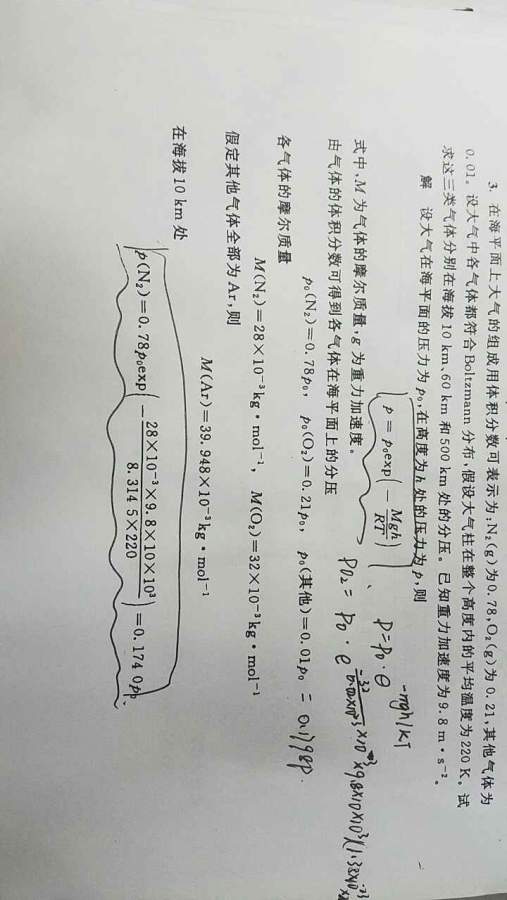 3. 在海平面上大气的组成用体积分数可表示为:N₂(g)为0.78,O₂(g)为0.21,其他气体为
0.01。设大气中各气体都符合Boltzmann分布,假设大气柱在整个高度内的平均温度为220 K。试
求这三类气体分别在海拔10 km、60 km和500 km处的分压。已知重力加速度为9.8 m·s⁻²。
解 设大气在海平面的压力为p₀,在高度为h处的压力为p,则
p=p₀exp(-Mgh/RT)
P=P₀·e^(-mgh/kT)
式中,M为气体的摩尔质量,g为重力加速度。
由气体的体积分数可得到各气体在海平面上的分压
p₀(N₂)=0.78p₀, p₀(O₂)=0.21p₀, p₀(其他)=0.01p₀
PO₂= P₀·e
=0.1798P.
各气体的摩尔质量
M(N₂)=28×10⁻³kg·mol⁻¹, M(O₂)=32×10⁻³kg·mol⁻¹
假定其他气体全部为Ar,则
M(Ar)=39.948×10⁻³kg·mol⁻¹
在海拔10 km处
p(N₂)=0.78p₀exp(-28×10⁻³×9.8×10×10³/8.3145×220)=0.1740p₀